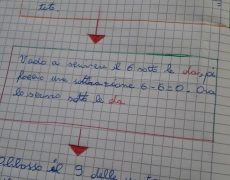 tito.
Vado a scrivere il 6 sotto le da, pi
faccio una sottrazione 6-6=0. Ora
lo scrivo sotto le da
Abbasso il 9 delle